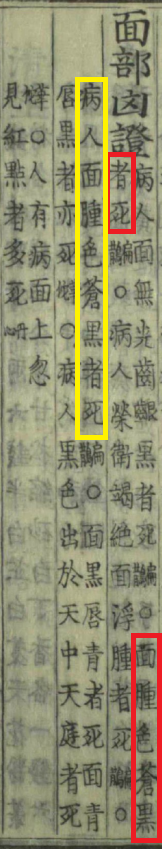 面部凶證
病人面無光齒齦黑者死扁鵲○面腫色蒼黑
者死扁鵲○病人榮衛竭絶面浮腫者死扁鵲○
病人面腫色蒼黑者死扁鵲○面黑唇青者死面青
唇黑者亦死華佗○病人黑色出於天中天庭者死
華佗○人有病面上忽
見紅點者多死丹心